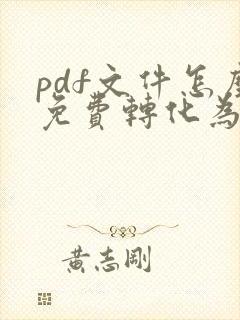 pdf文件怎麼
免費轉化為
黃志剛